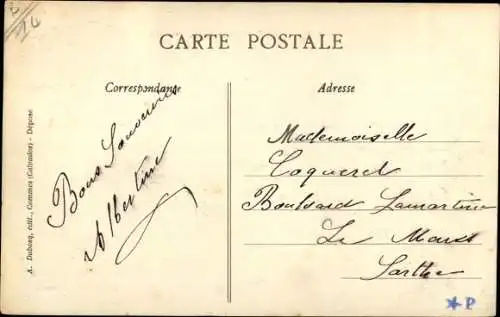 CARTE POSTALE
Correspondance
Adresse
Bons Souvenirs
Albertine
Mademoiselle
Coqueret
Boulevard Lamartine
Le Mans
Sarthe
A. Dubosq, édit., Commes (Calvados) - Déposé
P